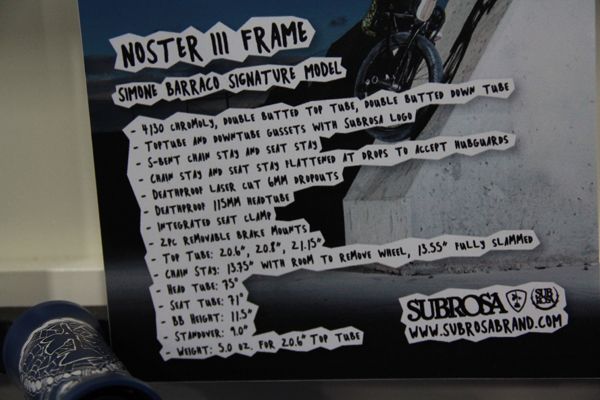 NOSTER III FRAME
SIMONE BARRACO SIGNATURE MODEL
- 4130 CHROMOLY, DOUBLE BUTTED TOP TUBE, DOUBLE BUTTED DOWN TUBE
- TOPTUBE AND DOWNTUBE GUSSETS WITH SUBROSA LOGO
- S-BENT CHAIN STAY AND SEAT STAY
- CHAIN STAY AND SEAT STAY FLATTENED AT DROPS TO ACCEPT HUBGUARDS
- DEATHPROOF LASER CUT 6MM DROPOUTS
- DEATHPROOF 115MM HEADTUBE
- INTEGRATED SEAT CLAMP
- 2PC REMOVABLE BRAKE MOUNTS
- TOP TUBE: 20.6", 20.8", 21.15"
- CHAIN STAY: 13.75" WITH ROOM TO REMOVE WHEEL, 13.55" FULLY SLAMMED
- HEAD TUBE: 75°
- SEAT TUBE: 71°
- BB HEIGHT: 11.5"
- STANDOVER: 9.0"
- WEIGHT: 5.0 OZ. FOR 20.6" TOP TUBE
SUBROSA
SUB ROSA
WWW.SUBROSABRAND.COM